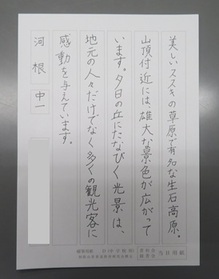 美しいススキの草原で有名な生石高原。
山頂付近には、雄大な景色が広がって
います。夕日の丘にたなびく光景は、
地元の人々だけでなく多くの観光客に
感動を与えています。
河根 中一